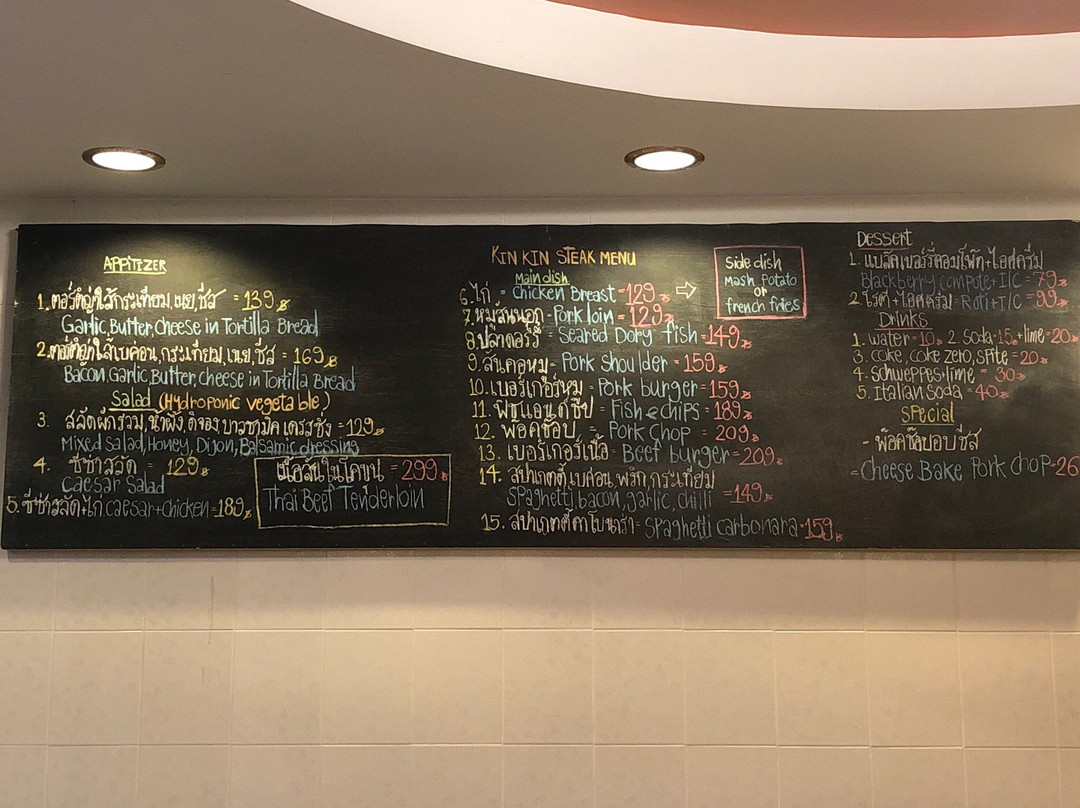 APPITIZER
1. ตอร์ติญ่าไส้กระเทียม,เนย,ชีส = 139฿
Garlic,Butter,Cheese in Tortilla Bread
2. ตอร์ติญ่าไส้เบค่อน,กระเทียม,เนย,ชีส = 169฿
Bacon,Garlic,Butter,Cheese in Tortilla Bread
Salad (Hydroponic vegetable)
3. สลัดผักรวม,น้ำผึ้ง,ดิจอง บาวซามิค เดรสซิ่ง = 129฿
Mixed Salad, Honey, Dijon, Balsamic dressing
4. ซีซาสลัด = 129฿
Caesar Salad
5. ซีซาสลัด+ไก่ caesar+chicken = 189฿
เนื้อสันในโคขุน = 299฿
Thai Beef Tenderloin
KIN KIN STEAK MENU
Main dish
6. ไก่ = Chicken Breast = 129฿
7. หมูสันนอก = Pork loin = 129฿
8. ปลาดอร์รี่ = Seared Dory fish = 149฿
9. สันคอหมู = Pork Shoulder = 159฿
10. เบอร์เกอร์หมู = Pork burger = 159฿
11. ฟิชแอนด์ชิป = Fish & chips = 189฿
12. พอคช็อป = Pork Chop = 209฿
13. เบอร์เกอร์เนื้อ = Beef burger = 209฿
14. สปาเกตตี้,เบค่อน,พริก,กระเทียม
Spaghetti,bacon,garlic,chilli = 149฿
15. สปาเกตตี้คาโบนารา = Spaghetti carbonara = 159฿
Side dish
Mash Potato
or
french frides
Dessert
1. แบล็คเบอร์รี่คอมโพ้ท+ไอศครีม
Blackberry compote+I/C = 79฿
2. โรตี+ไอศครีม = Roti+I/C = 99฿
Drinks
1. water = 10฿ 2. Soda = 15฿ + lime = 20฿
3. coke, coke zero, Sprite = 20฿
4. Schweppes+lime = 30฿
5. Italian Soda = 40฿
Special
- พ๊อคช๊อบอบชีส
= Cheese Bake Pork chop = 26